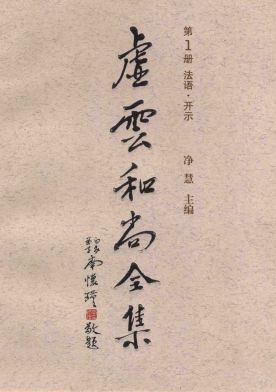 第1册 法语·开示
净慧 主编
虚雲和尚全集
南懷瑾 敬題